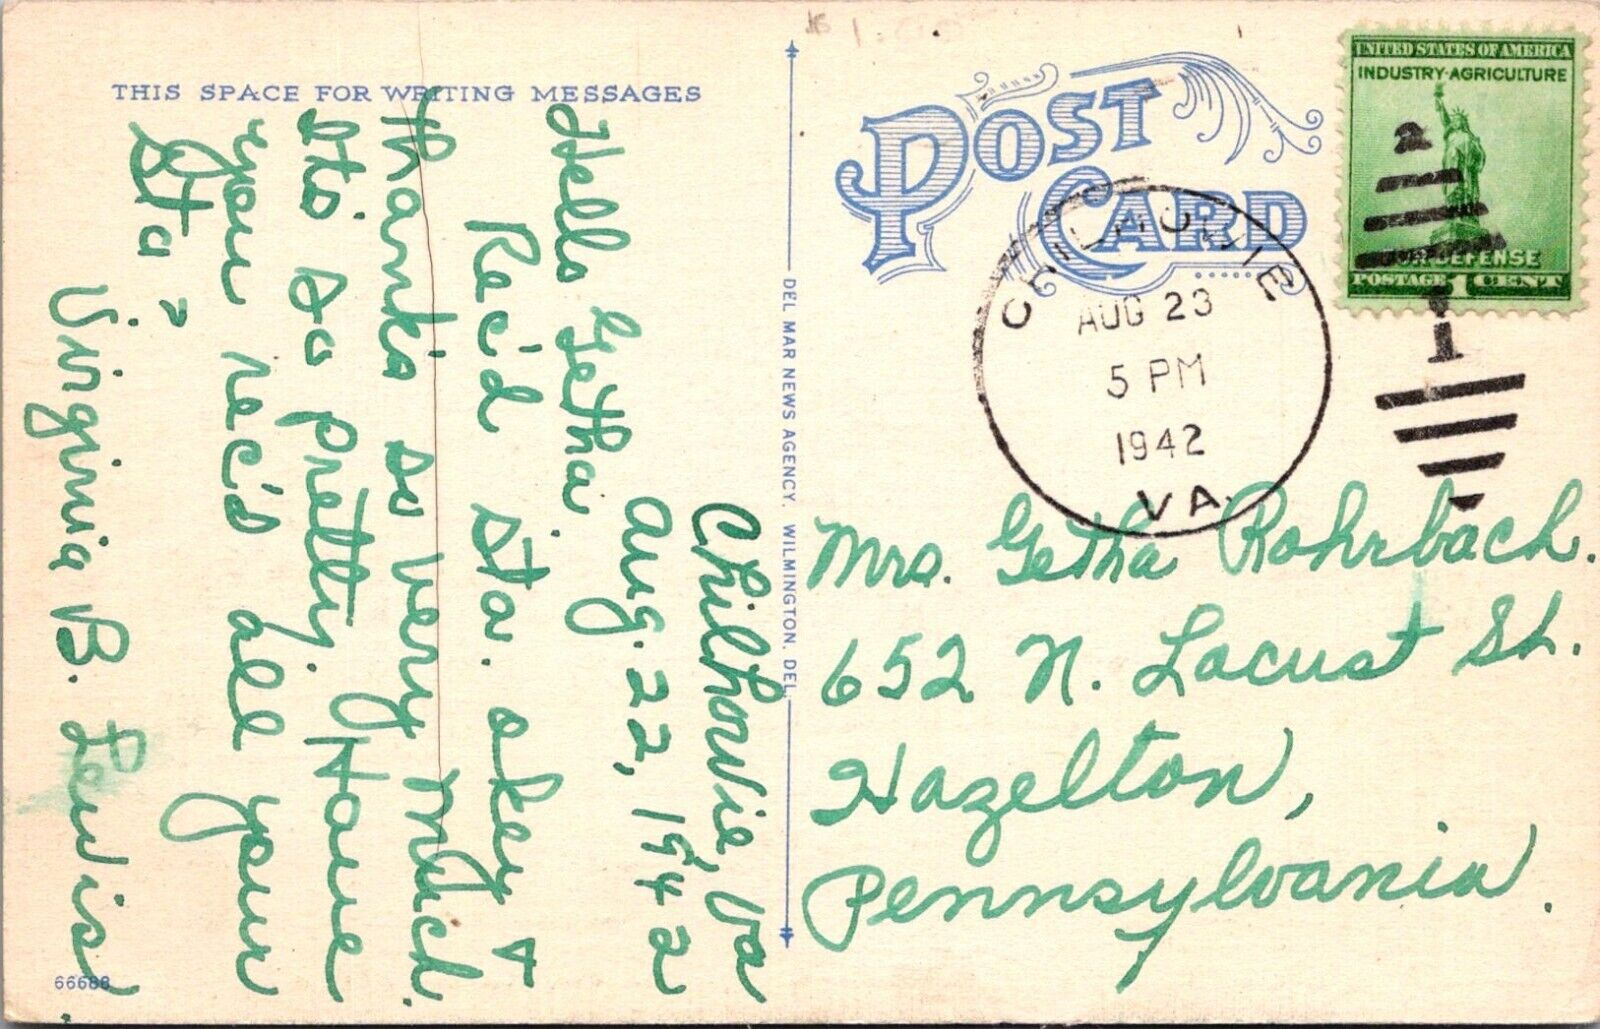 THIS SPACE FOR WRITING MESSAGES
Chilhowie, Va
Aug. 22, 1942
Hello Getha.
Rec'd sta. okey +
thank's so very much.
It's so pretty. Have
you rec'd all your
Sta.?
Virginia B. Lewis.
66688
DEL MAR NEWS AGENCY. WILMINGTON. DEL.
POST CARD
CHILHOWIE
AUG 23
5 PM
1942
VA.
UNITED STATES OF AMERICA
INDUSTRY·AGRICULTURE
FOR DEFENSE
POSTAGE 1 CENT
1
Mrs. Getha Rohrbach.
652 N. Locust St.
Hazelton,
Pennsylvania.